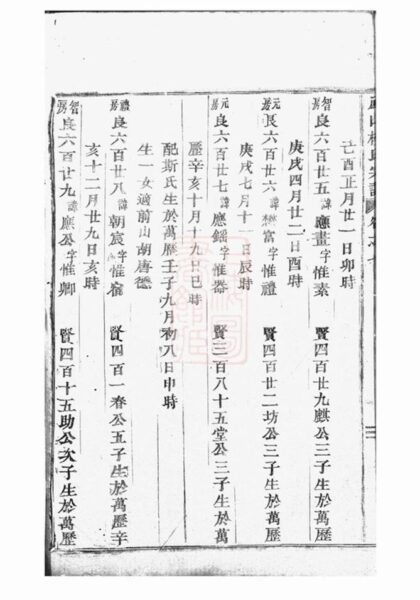 己酉正月廿一日卯時
智房良六百廿五諱應畫字惟素 賢四百廿九麒公三子生於萬歷
庚戌四月廿二日酉時
元房良六百廿六諱懋富字惟禮 賢四百廿二坊公三子生於萬歷
庚戌七月十一日辰時
元房良六百廿七諱應字惟器 賢三百八十五堂公三子生於萬
歷辛亥十月十九日巳時
配斯氏生於萬歷壬子九月初八日申時
生一女適前山胡唐
禮房良六百廿八諱朝宸字惟宿 賢四百一春公五子生於萬歷辛
亥十二月廿九日亥時
智房良六百廿九諱應公字惟卿 賢四百十五助公次子生於萬歷